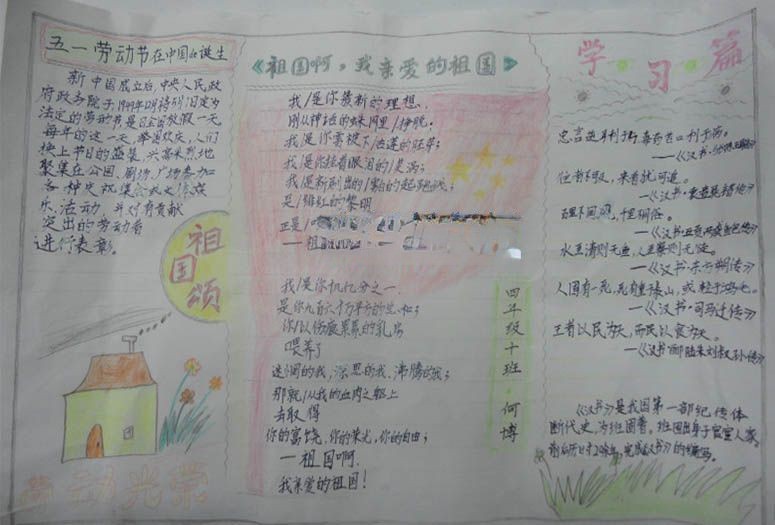 五一劳动节在中国的诞生
新中国成立后,中央人民政
府政务院于1949年12月
法定的劳动节是日全国放假一天
每年的这一天,举国欢庆,人们
换上节日的盛装,兴高采烈地
聚集在公园、剧场、广场参加
各种庆祝集会或文体娱
乐活动,并对有贡献
突出的劳动者
进行表彰。
祖国颂
劳动光荣
《祖国啊,我亲爱的祖国》
我/是你簇新的理想,
刚从神话的蛛网里/挣脱;
我/是你雪被下/古莲的胚芽;
我/是你挂着眼泪的/笑涡;
我/是新刷出的/雪白的起跑线;
是/绯红的黎明
正是/
——祖
我/是你十亿分之一
是你九百六十万平方的总和;
你/以伤痕累累的乳房
喂养了
迷惘的我、深思的我、沸腾的我;
那就/从我的血肉之躯上
去取得
你的富饶,你的荣光,你的自由;
——祖国啊,
我亲爱的祖国!
四年级十班·何博
学习篇
忠言逆耳利于行,毒药苦口利于病。
往者不可及,来者犹可追。
百闻不如一见
水至清则无鱼,人至察则无徒。
——《汉书·东方朔传》
人固有一死,死有重于泰山,或轻于鸿毛。
——《汉书·司马迁传》
王者以民为天,而民以食为天。
——《汉书·郦陆朱刘叔孙传》
《汉书》是我国第一部纪传体
断代史,为班固著。班固出身于官宦人家。
前后历时20余年,完成《汉书》的编写。